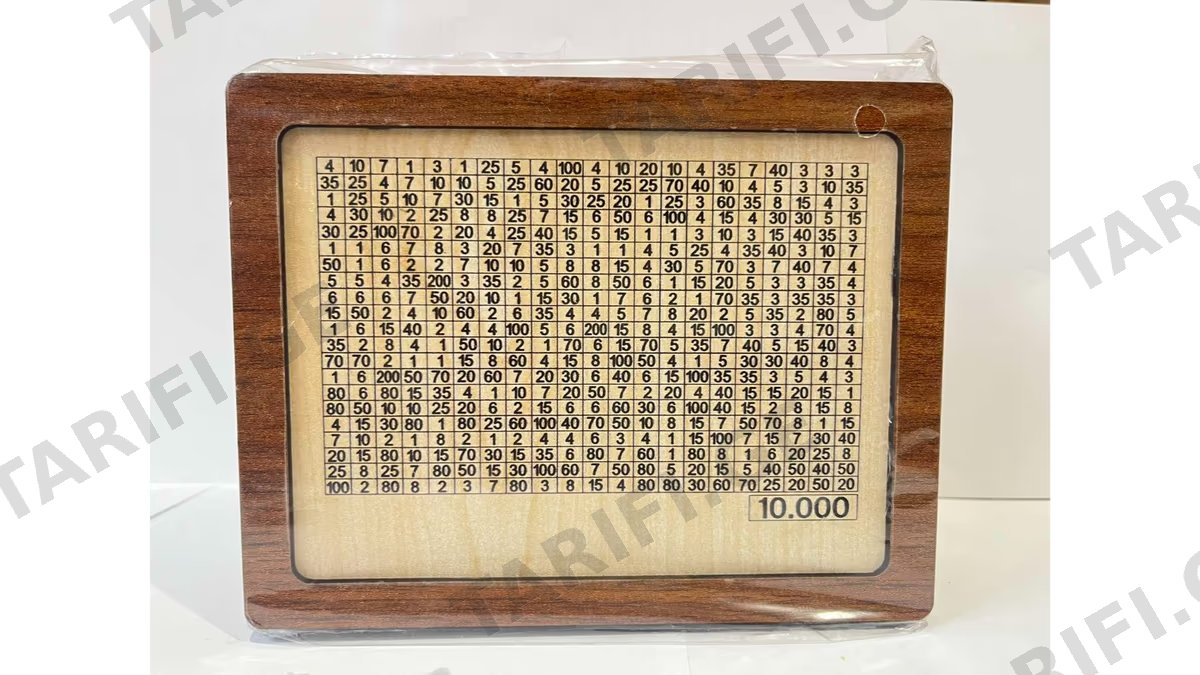 TARIFI.GE
TARIFI.GE
4 10 7 1 3 1 25 5 4 100 4 10 20 10 4 35 7 40 3 3 3
35 25 4 7 10 10 5 25 60 20 5 25 25 70 40 10 4 5 3 10 35
1 25 5 10 7 30 15 1 5 30 25 20 1 25 3 60 35 8 15 4 3
4 30 10 2 25 8 8 25 7 15 6 50 6 100 4 15 4 30 30 5 15
30 25 100 70 2 20 4 25 40 15 5 15 1 1 3 10 3 15 40 35 3
1 1 6 7 8 3 20 7 35 3 1 1 4 5 25 4 35 40 3 10 7
50 1 6 2 2 7 10 10 5 8 8 15 4 30 5 70 3 7 40 7 4
5 5 4 35 200 3 35 2 5 60 8 50 6 1 15 20 5 3 3 35 4
6 6 6 7 50 20 10 1 15 30 1 7 6 2 1 70 35 3 35 35 3
15 50 2 4 10 60 2 6 35 4 4 5 7 8 20 2 5 35 2 80 5
1 6 15 40 2 4 4 100 5 6 200 15 8 4 15 100 3 3 4 70 4
35 2 8 4 1 50 10 2 1 70 6 15 70 5 35 7 40 5 15 40 3
70 70 2 1 1 15 8 60 4 15 8 100 50 4 1 5 30 30 40 8 4
1 6 200 50 70 20 60 7 20 30 6 40 6 15 100 35 35 3 5 4 3
80 6 80 15 35 4 1 10 7 20 50 7 2 20 4 40 15 15 20 15 1
80 50 10 10 25 20 6 2 15 6 6 60 30 6 100 40 15 2 8 15 8
4 15 30 80 1 80 25 60 100 40 70 50 10 8 15 7 50 70 8 1 15
7 10 2 1 8 2 1 2 4 4 6 3 4 1 15 100 7 15 7 30 40
20 15 80 10 15 70 30 15 35 6 80 7 60 1 80 8 1 6 20 25 8
25 8 25 7 80 50 15 30 100 60 7 50 80 5 20 15 5 40 50 40 50
100 2 80 8 2 3 7 80 3 8 15 4 80 80 30 60 70 25 20 50 20
10.000
TARIFI.GE
TARIFI.GE